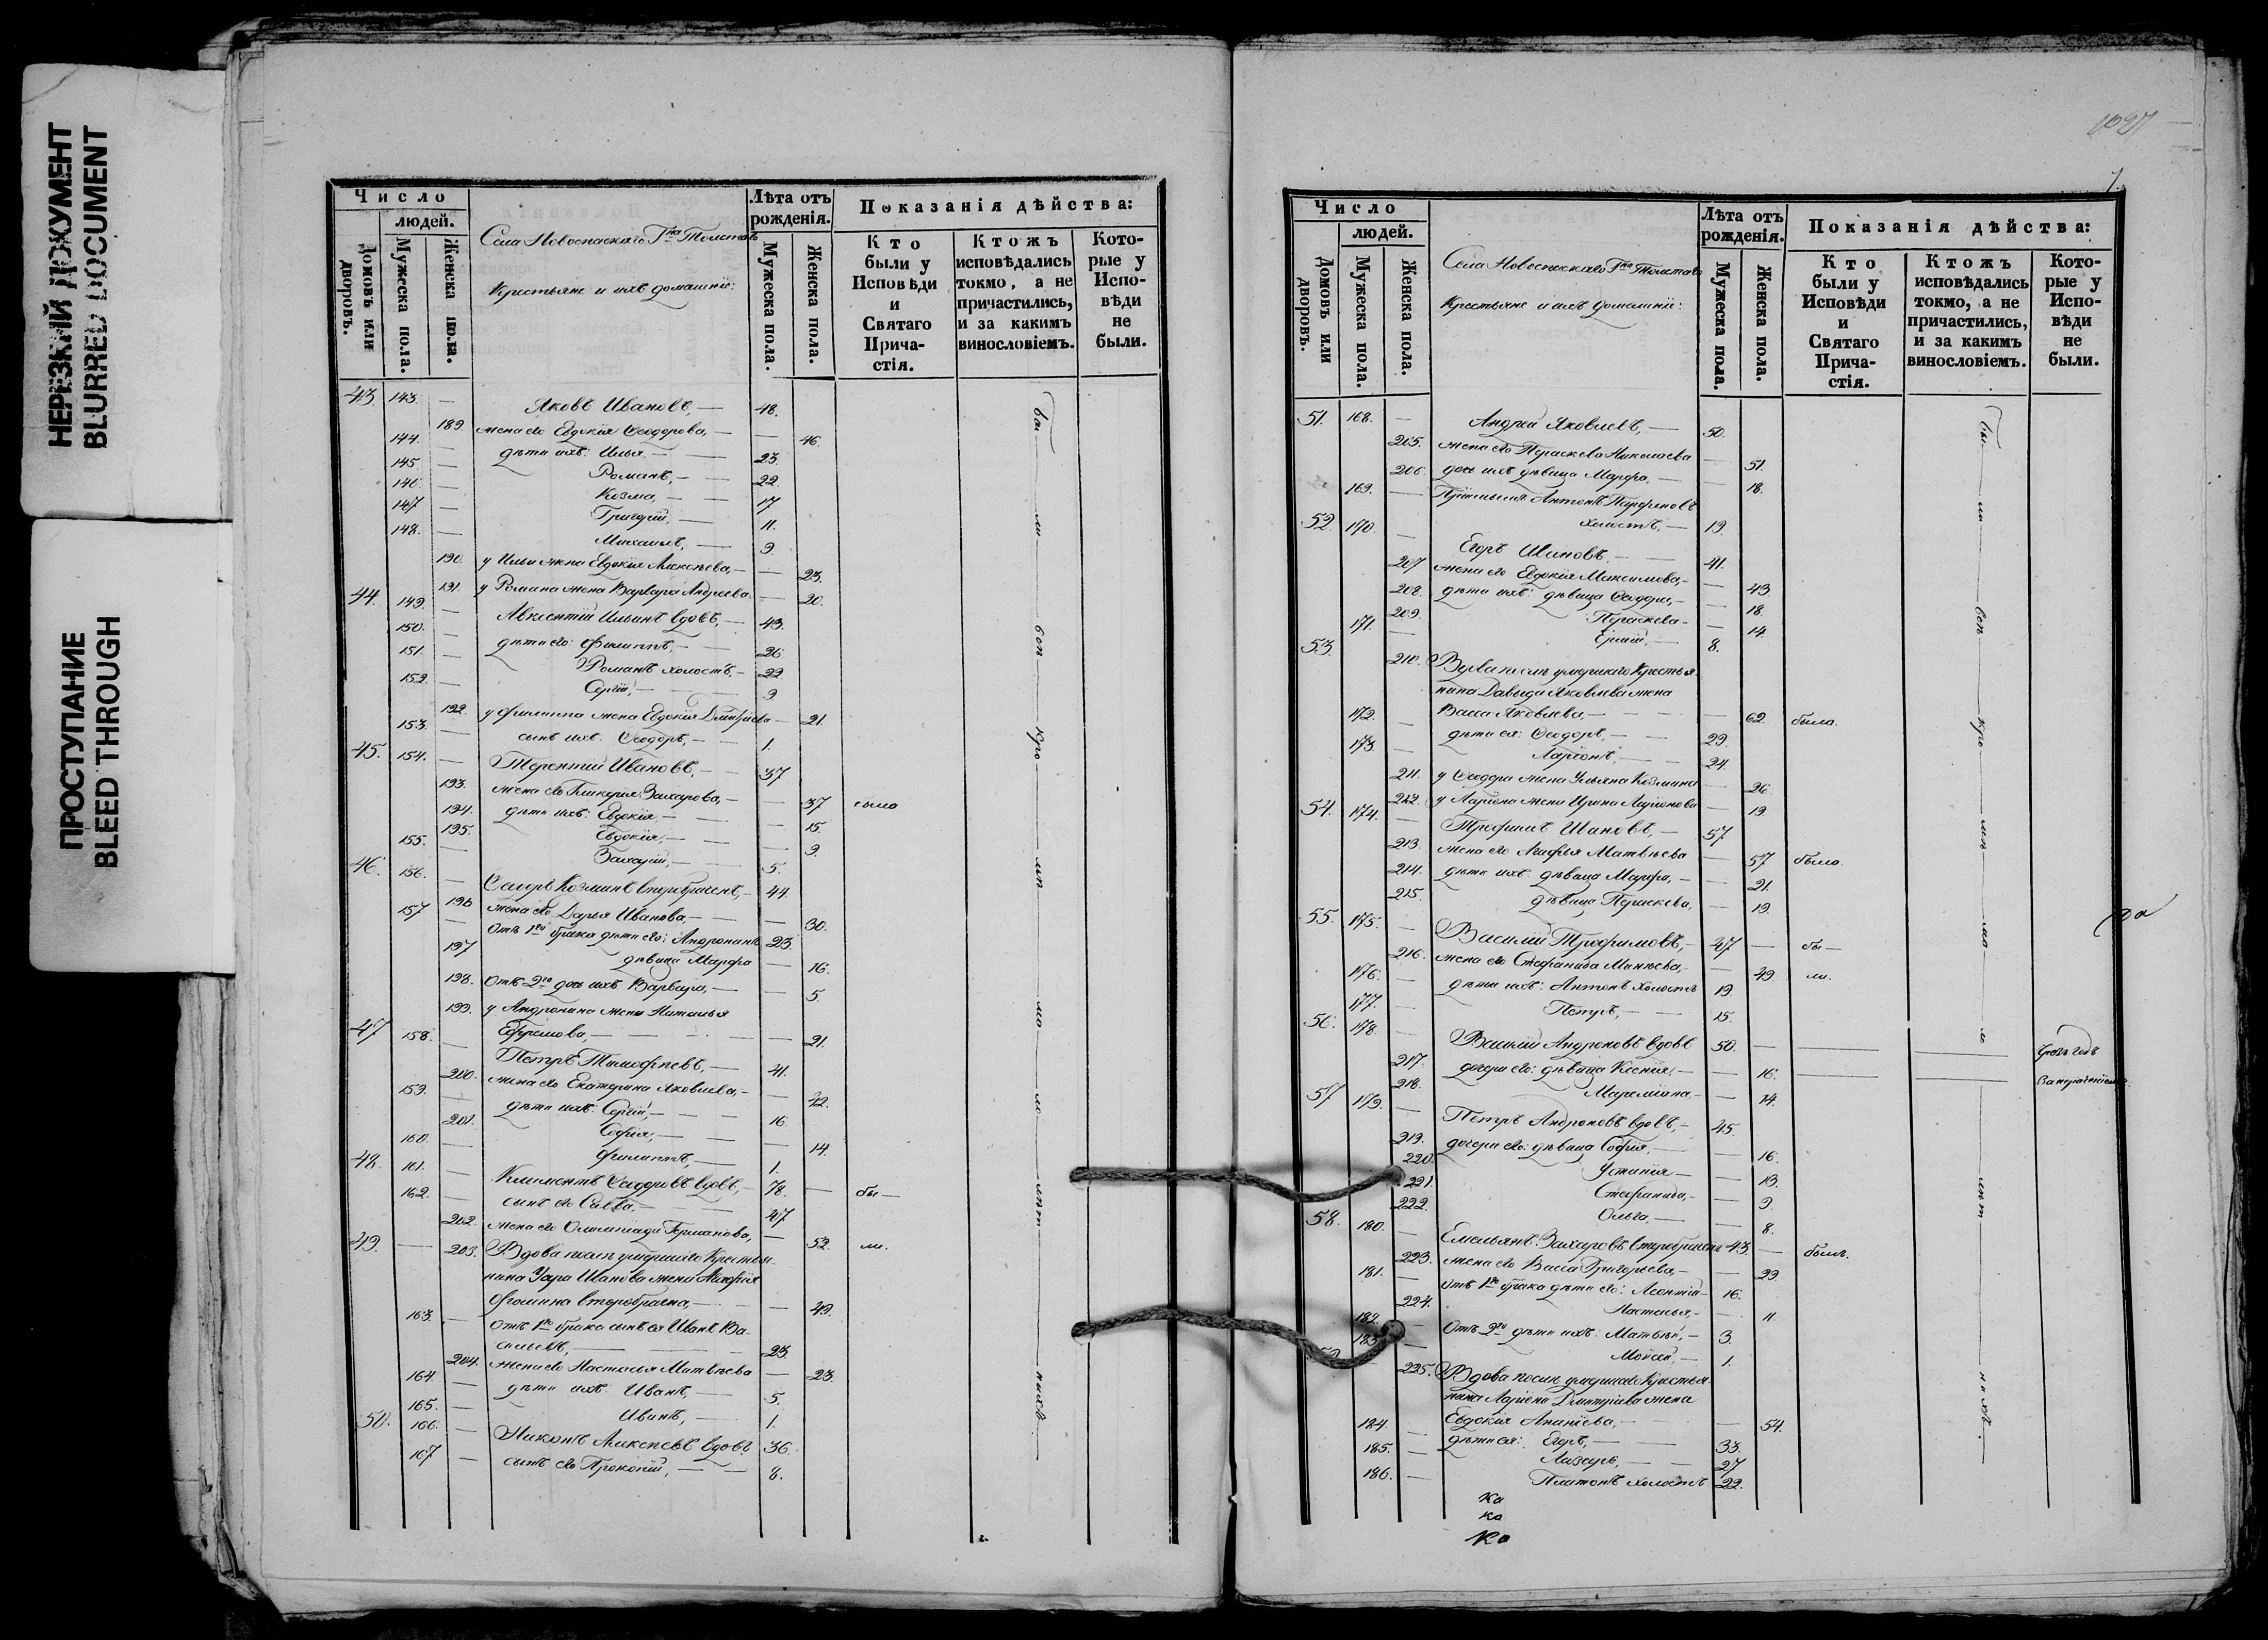 НЕРЕЗКИЙ ДОКУМЕНТ
BLURRED DOCUMENT
ПРОСТУПАНИЕ
BLEED THROUGH
Число
людей.
Домовъ или дворовъ.
Мужеска пола.
Женска пола.
Села Новоспаскаго Гна Толстаго
Крестьяне и ихъ домашніе:
Лѣта отъ рожденія.
Мужеска пола.
Женска пола.
Показанія дѣйства:
Кто были у Исповѣди и Святаго Причастія.
Ктожъ исповѣдались токмо, а не причастились, и за какимъ винословіемъ.
Которые у Исповѣди не были.
43. 143. — Яковъ Ивановъ, — 48.
189. жена его Евдокія Ѳеодорова, — 46.
144. — дѣти ихъ: Илья, — 23.
145. — Романъ, — 22.
146. — Козма, — 17
147 — Григорій, — 11.
148. — Михаилъ, — 9.
190. у Ильи жена Евдокія Алексѣева, — 23.
191. у Романа жена Варвара Андреева — 20.
44. 149. — Авксентій Ильинъ вдовъ, — 43.
150. — дѣти его: Филиппъ, — 26
151. — Романъ холостъ, — 22
152. — Сергій, — 9
192. у Филиппа жена Евдокія Дмитріева — 21.
153. — сынъ ихъ Ѳеодоръ, — 1.
45. 154. — Терентій Ивановъ, — 37
193. жена его Гликерія Захарова, — 37 была
194. дѣти ихъ: Евдокія — 15.
195. Евдокія, — 9.
155. — Захарій, — 5.
46. 156. — Козминъ второбраченъ, — 44.
196 жена его Дарья Иванова, — 30.
157 — Отъ 1го брака дѣти его: Андроникъ 23.
197 дѣвица Марфа — 16.
198. Отъ 2го дочь ихъ Варвара, — 5
199. у Андроника жена Наталья
Ефремова, — 21.
47 158. — Петръ Тимофеевъ, — 41.
200. жена его Екатерина Яковлева, — 42.
159. — дѣти ихъ: Сергій, — 16.
201. Софія, — 14.
160. — Филиппъ, — 1.
48. 161. — Климентъ Ѳеодоровъ вдовъ, — 78. — бы —
162. — сынъ его Савва, 47
202. жена его Олимпіада Германова, — 52. ли.
49. — 203. Вдова послѣ умершаго Крестья-
нина Уара Иванова жена Агафія
Фомина второбрачна, — 49.
163. — Отъ 1го брака сынъ ея Иванъ Ва-
сильевъ, — 23.
204. жена его Настасья Матвѣева — 23.
164. — дѣти ихъ Иванъ, — 5.
165. — Иванъ, — 1.
50. 166. — Никонъ Алексѣевъ вдовъ 36.
167 — сынъ его Прокопій, — 8.
1027
7.
Число
людей.
Домовъ или дворовъ.
Мужеска пола.
Женска пола.
Села Новоспаскаго Гна Толстаго
Крестьяне и ихъ домашніе:
Лѣта отъ рожденія.
Мужеска пола.
Женска пола.
Показанія дѣйства:
Кто были у Исповѣди и Святаго Причастія.
Ктожъ исповѣдались токмо, а не причастились, и за какимъ винословіемъ.
Которые у Исповѣди не были.
51. 168. — Андрей Яковлевъ, — 50.
205. жена его Параскева Николаева — 51.
206. дочь ихъ дѣвица Марфа, — 18.
169. — Антонъ Парфеновъ
холостъ, — 19.
52. 170. — Егоръ Ивановъ — 41.
207 жена его Евдокія Максимова, — 43
208. дѣти ихъ: дѣвица Ѳеодора, — 18.
209. Параскева — 14.
171. — 8.
53. 210. Вдова послѣ умершаго Крестья-
нина Давыда Яковлева жена
Васса Яковлева, — 62. была.
172. — дѣти ея: Ѳеодоръ, — 29.
173. — Ларіонъ, — 24.
211. у Ѳеодора жена Ульяна Козмина — 26
212. у Ларіона жена Ирина Ларіонова — 19.
54. 174. — Трофимъ Ивановъ, — 57
213. жена его Агафія Матвѣева — 57 была.
214. дѣти ихъ: дѣвица Марфа, — 21.
215. дѣвица Параскева, — 19.
55. 175. — Василій Трофимовъ, — 47 — бы —
216. жена его Стефанида Минѣева, — 49. ли.
176. — дѣти ихъ: Антонъ холостъ 19.
177. — Петръ, — 15.
56. 178. — Василій Андроновъ вдовъ 50.
217. дочери его: дѣвица Ксенія, — 16.
218. Маремiана — 14.
57 179. — Петръ Андроновъ вдовъ, — 45.
219. дочери его: дѣвица Софія, — 16.
220. Устинія — 13.
221. Стефанида, — 9.
222. Ольга, — 8.
58. 180. — Емельянъ Захаровъ второбраченъ 43. — былъ.
223. жена его Васса Григорьева, — 29.
181. — Отъ 1го брака дѣти его: Леонтій — 16.
224. Настасья, — 11.
182. — Отъ 2го дѣти ихъ: Матвѣй, — 3.
183. — Моисей, — 1.
225. Вдова послѣ умершаго Крестья-
нина Ларіона Дмитріева жена
Евдокія Ананіева, — 54.
184. — дѣти ея: Егоръ, — 33.
185. — Лазарь, — 27
186. — Платонъ холостъ 22.
Ка
Ка
Ка